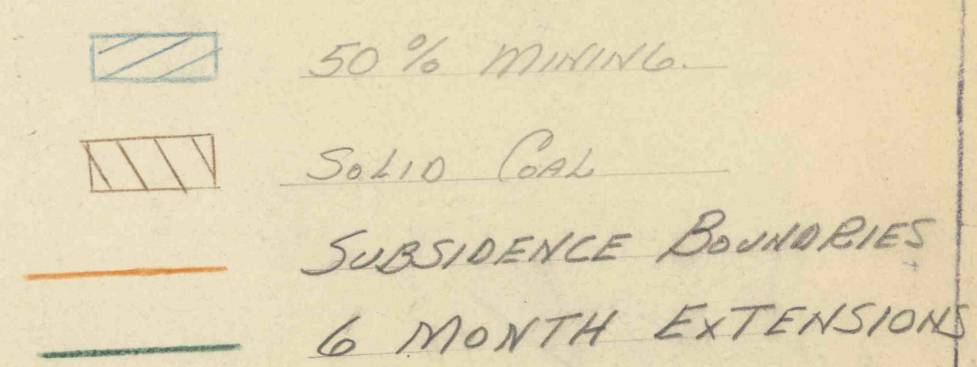 50 % MINING.
SOLID COAL
SUBSIDENCE BOUNDRIES
6 MONTH EXTENSIONS